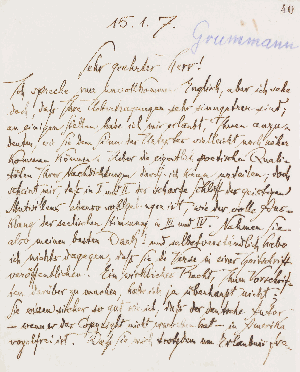 40
15.1.7.
Grummann
Sehr geehrter Herr!
Ich spreche nur unvollkommen Englisch, aber ich sehe
doch, daß Ihre Übertragungen sehr sinngetreu sind;
an einigen Stellen habe ich mir erlaubt, Ihnen anzu-
deuten, wo Sie dem Sinn der Verse vielleicht noch näher
kommen können. Ueber die eigentlich poetischen Quali-
täten Ihrer Nachdichtungen darf ich kaum urteilen; doch
scheint mir, daß in I und II der scharfe Schliff des geistigen
Mutwillens ebenso wohlgelungen ist wie der volle Aus-
klang der seelischen Stimmung in III und IV. Nehmen Sie
also meinen besten Dank! und selbstverständlich habe
ich nichts dagegen, daß Sie die Verse in einer Zeitschrift
veröffentlichen. Ein wirkliches Recht, Ihnen Vorschrif-
ten darüber zu machen, habe ich ja überhaupt nicht;
Sie wissen sicher so gut wie ich, daß der deutsche Autor
– wenn er das Copyright nicht erworben hat – in Amerika
vogelfrei ist. Daß Sie mich trotzdem um Erlaubnis